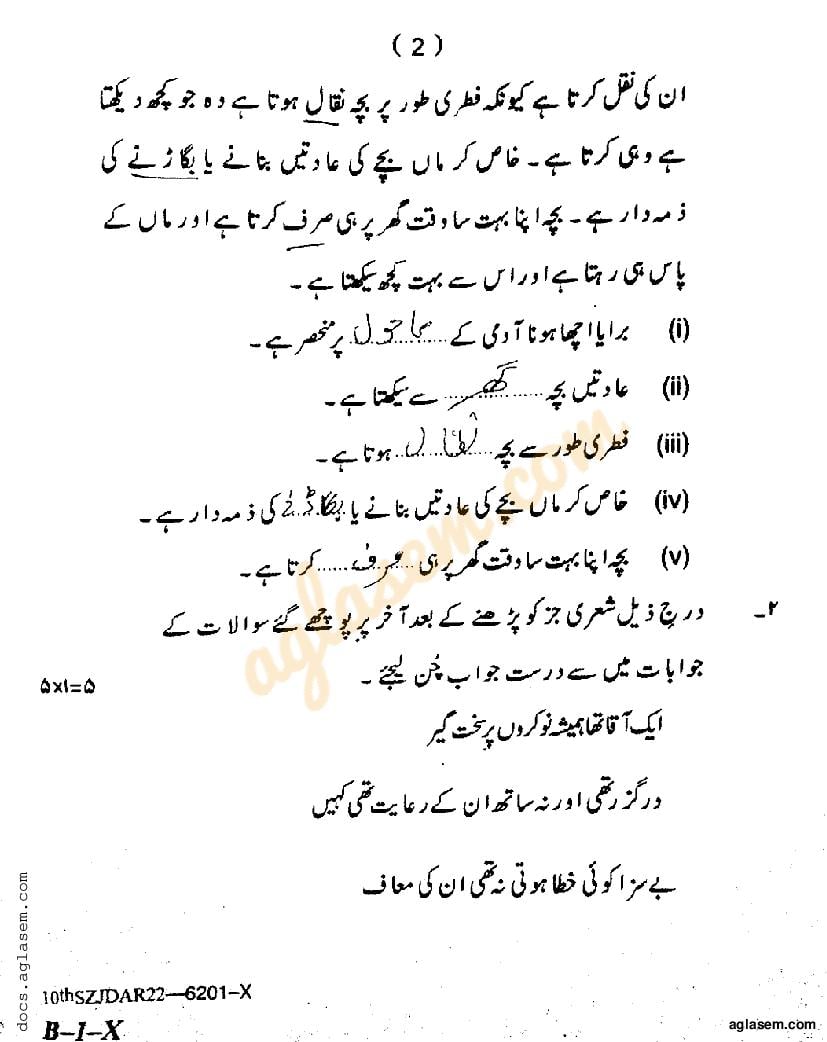 ( 2 )
ان کی نقل کرتا ہے کیونکہ فطری طور پر بچہ نقال ہوتا ہے وہ جو کچھ دیکھتا
ہے وہی کرتا ہے۔ خاص کر ماں بچے کی عادتیں بنانے یا بگاڑنے کی
ذمہ دار ہے۔ بچہ اپنا بہت سا وقت گھر پر ہی صرف کرتا ہے اور ماں کے
پاس ہی رہتا ہے اور اس سے بہت کچھ سیکھتا ہے۔
(i) برا یا اچھا ہونا آدمی کے ماحول پر منحصر ہے۔
(ii) عادتیں بچہ گھر سے سیکھتا ہے۔
(iii) فطری طور سے بچہ نقال ہوتا ہے۔
(iv) خاص کر ماں بچے کی عادتیں بنانے یا بگاڑنے کی ذمہ دار ہے۔
(v) بچہ اپنا بہت سا وقت گھر پر ہی صرف کرتا ہے۔
۲۔ درج ذیل شعری جز کو پڑھنے کے بعد آخر پر پوچھے گئے سوالات کے
جوابات میں سے درست جواب چُن لیجئے۔
۵x۱=۵
ایک آقا تھا ہمیشہ نوکروں پر سخت گیر
درگزر تھی اور نہ ساتھ ان کے رعایت تھی کہیں
بے سزا کوئی خطا ہوتی نہ تھی ان کی معاف
10thSZJDAR22—6201-X
B-1-X
docs.aglasem.com
aglasem.com
aglasem.com